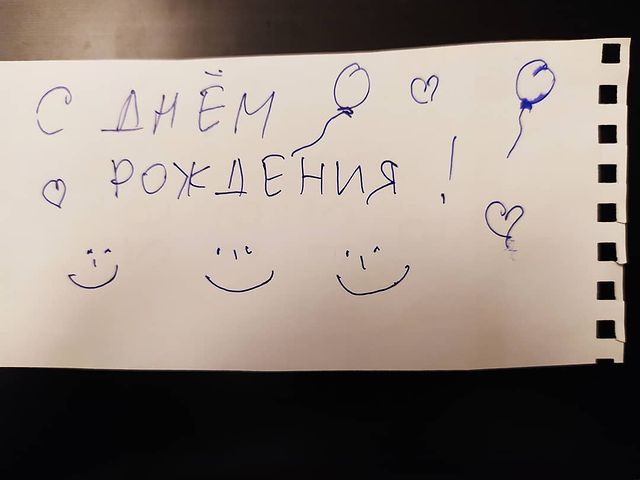 С ДНЁМ
РОЖДЕНИЯ !